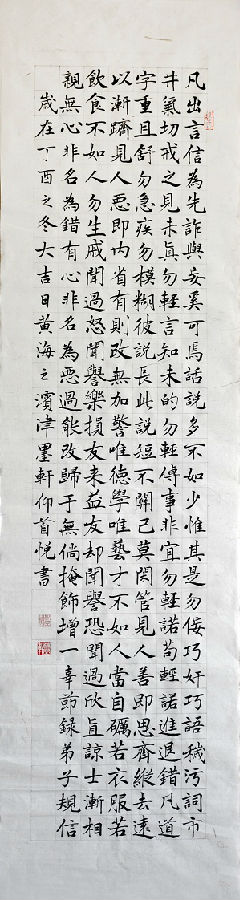 凡出言信為先詐與妄奚可焉話說多不如少惟其是勿佞巧奸巧語穢污詞市
井氣切戒之見未真勿輕言知未的勿輕傳事非宜勿輕諾苟輕諾進退錯凡道
字重且舒勿急疾勿模糊彼說長此說短不關己莫閑管見人善即思齊縱去遠
以漸躋見人惡即內省有則改無加警唯德學唯藝才不如人當自礪若衣服若
飲食不如人勿生戚聞過怒聞譽樂損友來益友却聞譽恐聞過欣直諒士漸相
親無心非名為錯有心非名為惡過能改歸于無倘掩飾增一辜節錄弟子規信
歲在丁酉之冬大吉日黃海之濱津墨軒仰首悅書